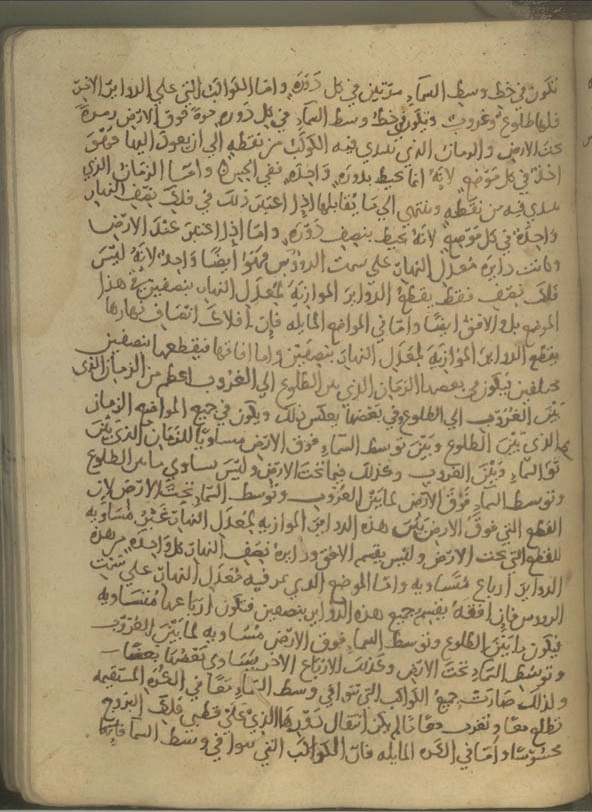 تكون في خط وسط السماء مرتين في كل دورة واما الكواكب التي على الدواير الاخر
فلها طلوع وغروب وتكون في خط وسط السماء في كل دورة مرة فوق الارض ومرة
تحت الارض والزمان الذي يبتدي فيه الكوكب من نقطه الى ان يعود اليها فهو
في كل موضع لانه انما يحيط بدوره واحده واما الزمان الذي
يبتدي فيه من نقطه وينتهي الى ما يقابلها اذا اعتبر ذلك في فلك نصف النهار
واحدة في كل موضع لانه يحيط بنصف دوره واما اذا اعتبر عند الارض
وكانت دايرة معدل النهار على سمت الرووس فهو ايضا واحد لانه ليس
فلك نصف فقط يقطع الدواير الموازية لمعدل النهار بنصفين في هذا
الموضع بل والافق ايضا واما في المواضع المايله فان افلاك انصاف نهارها
يقطع الدواير الموازية لمعدل النهار بنصفين واما افاقها فيقطعها بنصفين
مختلفين فيكون في بعضها الزمان الذي من الطلوع الى الغروب اعظم من الزمان الذي
بين الغروب الى الطلوع وفي بعضها بعكس ذلك ويكون في جميع المواضع الزمان
الذي بين الطلوع وبين توسط السماء فوق الارض مساويا للزمان الذي بين
السماء وبين الغروب وكذلك فيما تحت الارض وليس يساوي ما بين الطلوع
وتوسط السماء فوق الارض لما بين الغروب وتوسط السماء تحت الارض لان
القطع التي فوق الارض من هذه الدواير الموازيه لمعدل النهار غير مساويه
للقطع التي تحت الارض وليس يقسم الافق ودايرة نصف النهار كل واحده من هذه
الدواير ارباع متساويه واما الموضع الذي يمر فيه معدل النهار على سمت
الرووس فان افقه يقسم جميع هذه الدواير بنصفين فتكون ارباعها متساويه
فيكون ما بين الطلوع وتوسط السماء فوق الارض مساويه لما بين الغروب
وتوسط السماء تحت الارض وكذلك الارباع الاخر يساوي بعضها بعضا
ولذلك صارت جميع الكواكب التي تتوافى وسط السماء معا في الكره المستقيمه
تطلع معا وتغرب معا ما لم يكن انتقال دورها الذي على قطبي فلك البروج
محسوسا واما في الكره المايله فان الكواكب التي تتوافى وسط السما فانها